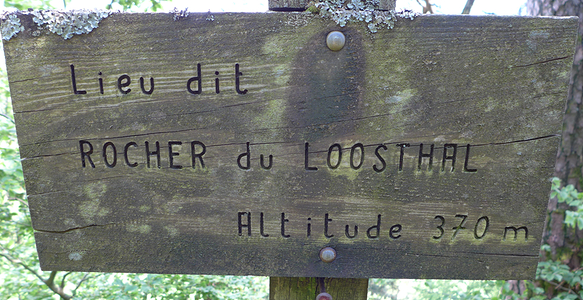 Lieu dit
ROCHER du LOOSTHAL
Altitude 370 m